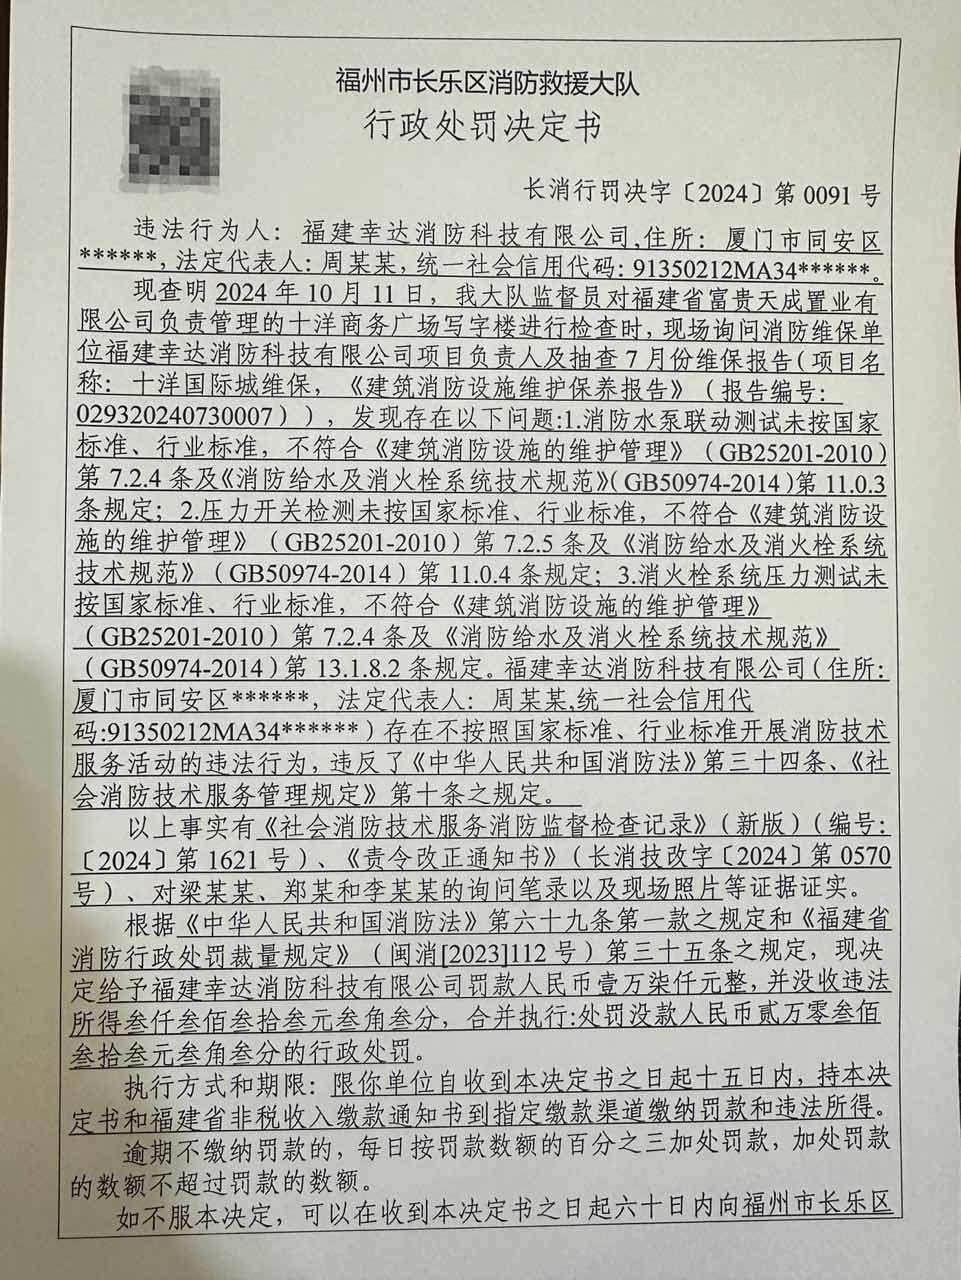 福州市长乐区消防救援大队
行政处罚决定书
长消行罚决字〔2024〕第 0091 号
违法行为人：福建幸达消防科技有限公司,住所：厦门市同安区
******, 法定代表人: 周某某, 统一社会信用代码: 91350212MA34******。
现查明 2024 年 10 月 11 日，我大队监督员对福建省富贵天成置业有
限公司负责管理的十洋商务广场写字楼进行检查时, 现场询问消防维保单
位福建幸达消防科技有限公司项目负责人及抽查 7 月份维保报告(项目名
称: 十洋国际城维保，《建筑消防设施维护保养报告》（报告编号:
029320240730007）），发现存在以下问题:1.消防水泵联动测试未按国家
标准、行业标准，不符合《建筑消防设施的维护管理》（GB25201-2010）
第 7.2.4 条及《消防给水及消火栓系统技术规范》(GB50974-2014)第 11.0.3
条规定；2.压力开关检测未按国家标准、行业标准，不符合《建筑消防设
施的维护管理》（GB25201-2010）第 7.2.5 条及《消防给水及消火栓系统
技术规范》（GB50974-2014）第 11.0.4 条规定；3.消火栓系统压力测试未
按国家标准、行业标准，不符合《建筑消防设施的维护管理》
（GB25201-2010）第 7.2.4 条及《消防给水及消火栓系统技术规范》
（GB50974-2014）第 13.1.8.2 条规定。福建幸达消防科技有限公司（住所:
厦门市同安区******，法定代表人：周某某,统一社会信用代
码:91350212MA34******）存在不按照国家标准、行业标准开展消防技术
服务活动的违法行为, 违反了《中华人民共和国消防法》第三十四条、《社
会消防技术服务管理规定》第十条之规定。
以上事实有《社会消防技术服务消防监督检查记录》（新版）（编号:
〔2024〕第 1621 号）、《责令改正通知书》（长消技改字〔2024〕第 0570
号）、对梁某某、郑某和李某某的询问笔录以及现场照片等证据证实。
根据《中华人民共和国消防法》第六十九条第一款之规定和《福建省
消防行政处罚裁量规定》（闽消[2023]112 号）第三十五条之规定，现决
定给予福建幸达消防科技有限公司罚款人民币壹万柒仟元整, 并没收违法
所得叁仟叁佰叁拾叁元叁角叁分，合并执行:处罚没款人民币贰万零叁佰
叁拾叁元叁角叁分的行政处罚。
执行方式和期限：限你单位自收到本决定书之日起十五日内，持本决
定书和福建省非税收入缴款通知书到指定缴款渠道缴纳罚款和违法所得。
逾期不缴纳罚款的，每日按罚款数额的百分之三加处罚款，加处罚款
的数额不超过罚款的数额。
如不服本决定，可以在收到本决定书之日起六十日内向福州市长乐区